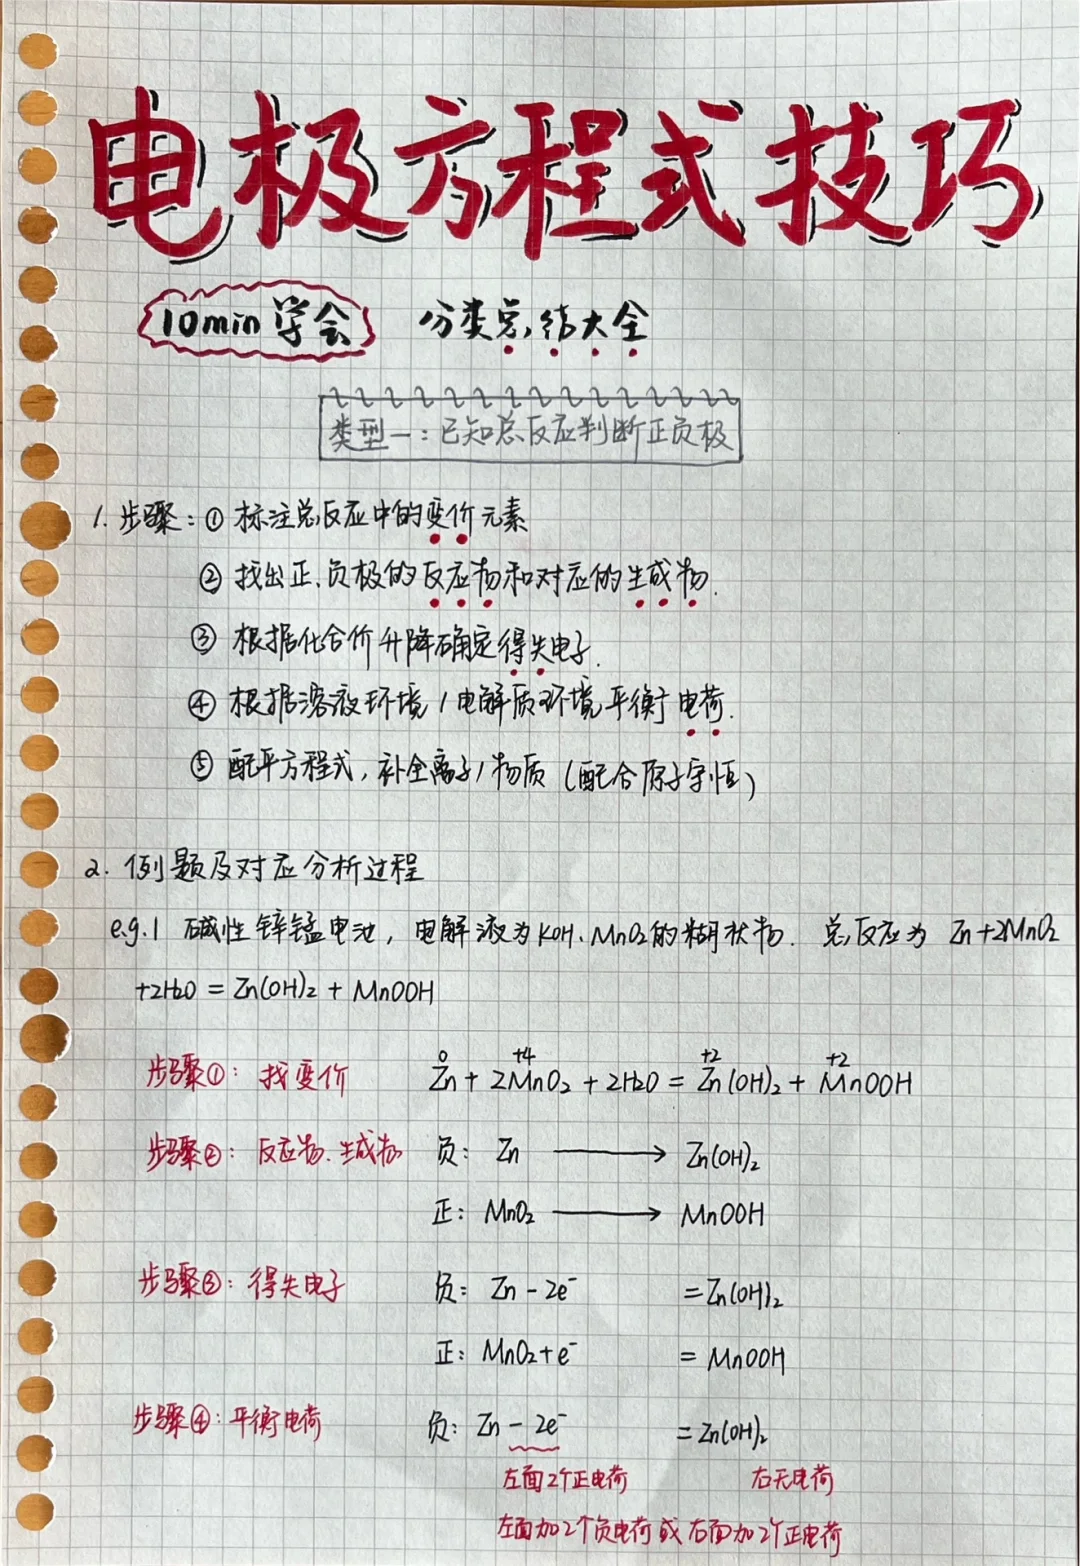 电极方程式技巧
10min学会 分类总结大全
类型一：已知总反应判断正负极
1. 步骤：① 标注总反应中的变价元素
② 找出正、负极的反应物和对应的生成物.
③ 根据化合价升降确定得失电子.
④ 根据溶液环境/电解质环境平衡电荷.
⑤ 配平方程式，补全离子/物质（配合原子守恒）
2. 例题及对应分析过程
e.g.1 碱性锌锰电池，电解液为KOH、MnO₂的糊状物. 总反应为 Zn+2MnO₂
+2H₂O = Zn(OH)₂ + MnOOH
0 +4 +2 +2
步骤①：找变价 Zn + 2MnO₂ + 2H₂O = Zn(OH)₂ + MnOOH
步骤②：反应物、生成物 负：Zn ⟶ Zn(OH)₂
正：MnO₂ ⟶ MnOOH
步骤③：得失电子 负：Zn - 2e⁻ = Zn(OH)₂
正：MnO₂+e⁻ = MnOOH
步骤④：平衡电荷 负：Zn - 2e⁻ = Zn(OH)₂
左面2个正电荷 右无电荷
左面加2个负电荷或右面加2个正电荷